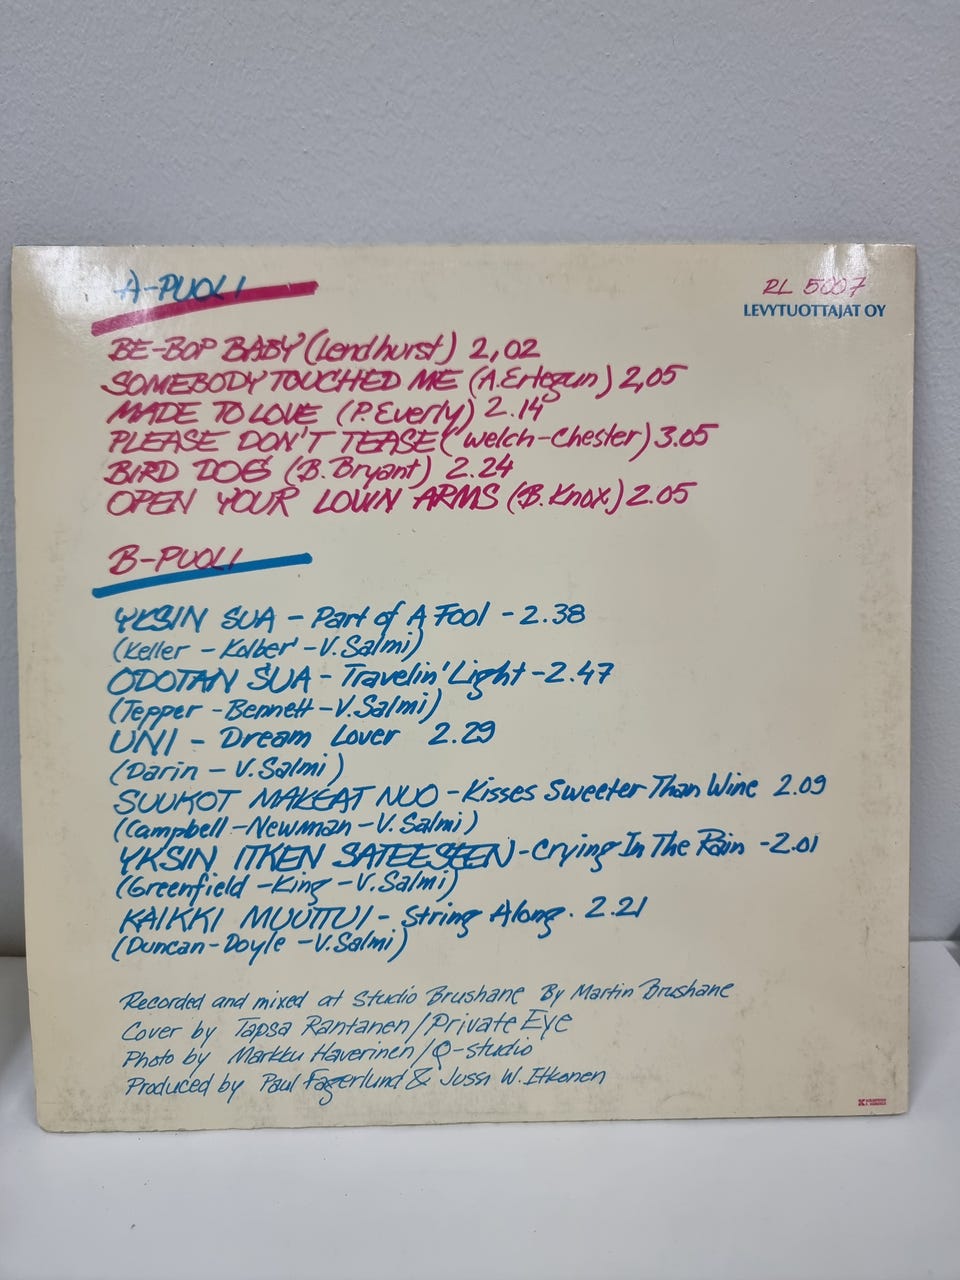 A-PUOLI
RL 5007
LEVYTUOTTAJAT OY
BE-BOP BABY (Lendhurst) 2,02
SOMEBODY TOUCHED ME (A.Ertegun) 2,05
MADE TO LOVE (P.Everly) 2.14
PLEASE DON'T TEASE (Welch-Chester) 3.05
BIRD DOG (B.Bryant) 2.24
OPEN YOUR LOVIN ARMS (B.Knox.) 2.05
B-PUOLI
YKSIN SUA - Part of A Fool - 2.38
(Keller - Kolber - V.Salmi)
ODOTAN SUA - Travelin' Light - 2.47
(Tepper - Bennett - V.Salmi)
UNI - Dream Lover 2.29
(Darin - V.Salmi)
SUUKOT MAKEAT NUO - Kisses Sweeter Than Wine 2.09
(Campbell - Newman - V.Salmi)
YKSIN ITKEN SATEESEEN - Crying In The Rain - 2.01
(Greenfield - King - V.Salmi)
KAIKKI MUUTTUI - String Along. 2.21
(Duncan - Doyle - V.Salmi)
Recorded and mixed at Studio Brushane By Martin Brushane
Cover by Tapsa Rantanen/Private Eye
Photo by Markku Haverinen/Q-studio
Produced by Paul Fagerlund & Jussi W. Itkonen